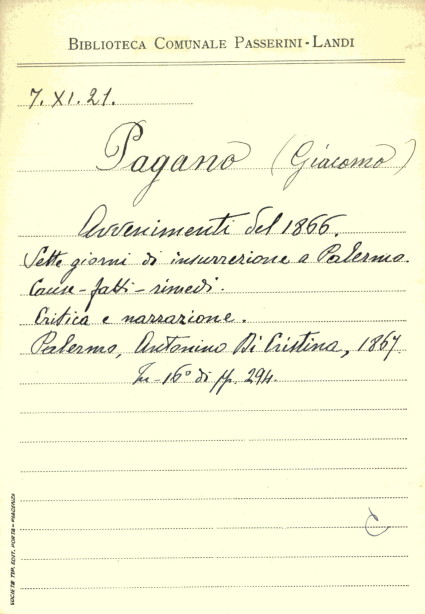 BIBLIOTECA COMUNALE PASSERINI-LANDI
7. XI. 21.
Pagano (Giacomo)
Avvenimenti del 1866.
Sette giorni di insurrezione a Palermo.
Cause - fatti - rimedi.
Critica e narrazione.
Palermo, Antonino Di Cristina, 1867.
In-16° di pp. 294.
C
SOCIETÀ TIP. EDIT. PORTA-PIACENZA